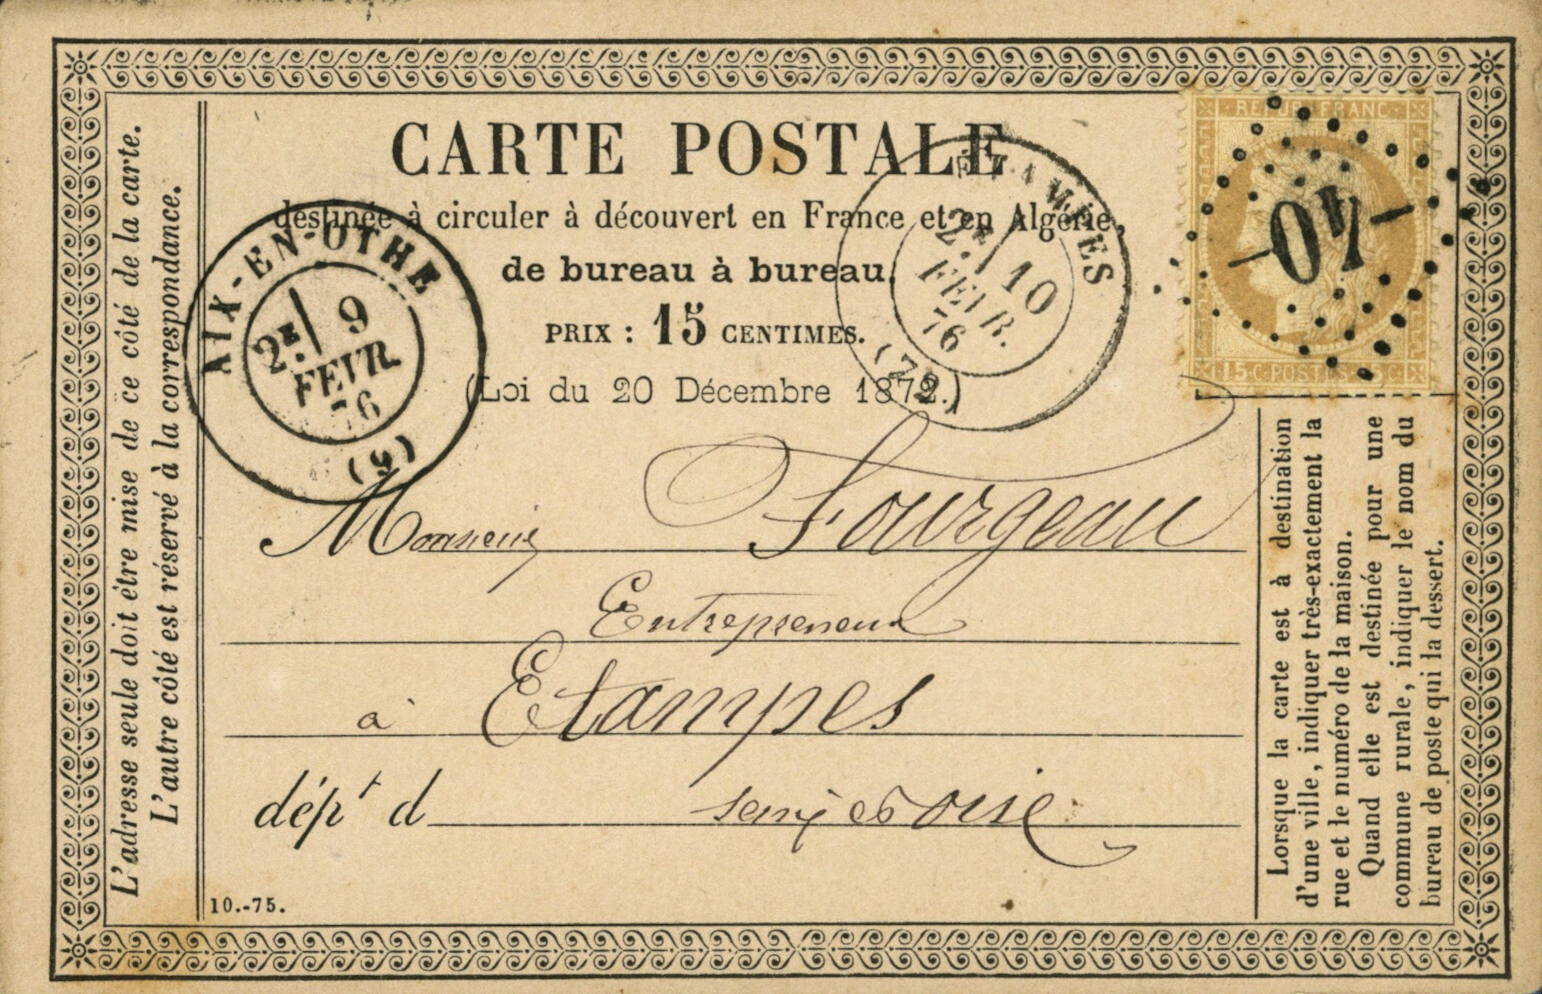 CARTE POSTALE
destinée à circuler à découvert en France et en Algérie,
de bureau à bureau.
PRIX : 15 CENTIMES.
(Loi du 20 Décembre 1872.)
REPUB. FRANC.
15 C. POSTES 15 C.
40
AIX-EN-OTHE
2E
9
FEVR.
76
(9)
ETAMPES
2E
10
FEVR.
76
Monsieur Fourgeau
Entrepreneur
à Etampes
dépt d seine et oise
10.-75.
L'adresse seule doit être mise de ce côté de la carte.
L'autre côté est réservé à la correspondance.
Lorsque la carte est à destination
d'une ville, indiquer très-exactement la
rue et le numéro de la maison.
Quand elle est destinée pour une
commune rurale, indiquer le nom du
bureau de poste qui la dessert.